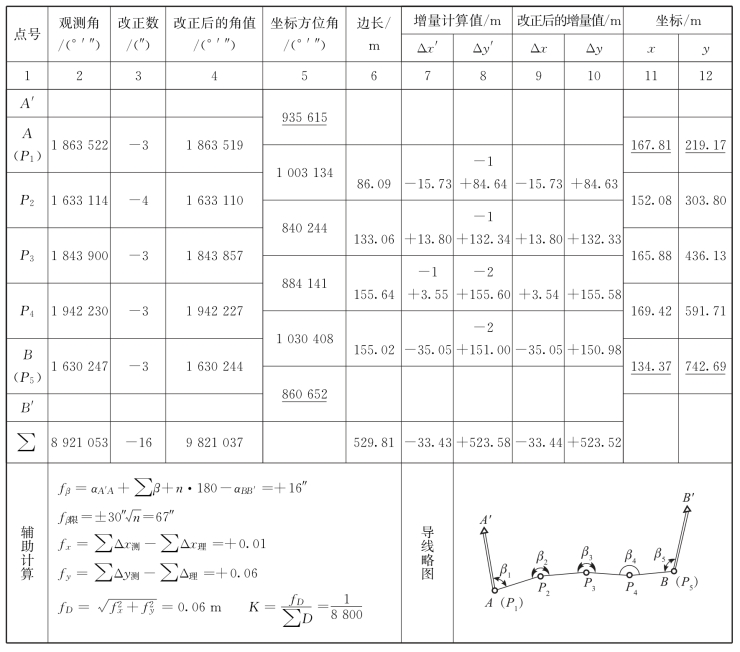 点号 观测角/(° ′ ″) 改正数/(″) 改正后的角值/(° ′ ″) 坐标方位角/(° ′ ″) 边长/m 增量计算值/m 改正后的增量值/m 坐标/m
Δx′ Δy′ Δx Δy x y
1 2 3 4 5 6 7 8 9 10 11 12
A′
935 615
A (P₁) 1 863 522 −3 1 863 519 167.81 219.17
1 003 134 86.09 −15.73 −1 +84.64 −15.73 +84.63
P₂ 1 633 114 −4 1 633 110 152.08 303.80
840 244 133.06 +13.80 −1 +132.34 +13.80 +132.33
P₃ 1 843 900 −3 1 843 857 165.88 436.13
884 141 155.64 −1 +3.55 −2 +155.60 +3.54 +155.58
P₄ 1 942 230 −3 1 942 227 169.42 591.71
1 030 408 155.02 −35.05 −2 +151.00 −35.05 +150.98
B (P₅) 1 630 247 −3 1 630 244 134.37 742.69
860 652
B′
∑ 8 921 053 −16 9 821 037 529.81 −33.43 +523.58 −33.44 +523.52
辅助计算
f_β = α_A′A + ∑β + n · 180 − α_BB′ = +16″
f_β限 = ±30″√n = 67″
f_x = ∑Δx测 − ∑Δx理 = +0.01
f_y = ∑Δy测 − ∑Δ理 = +0.06
f_D = √(f_x² + f_y²) = 0.06 m K = f_D/∑D = 1/8 800
导线略图
A′ B′
β₁ β₂ β₃ β₄ β₅
A (P₁) P₂ P₃ P₄ B (P₅)